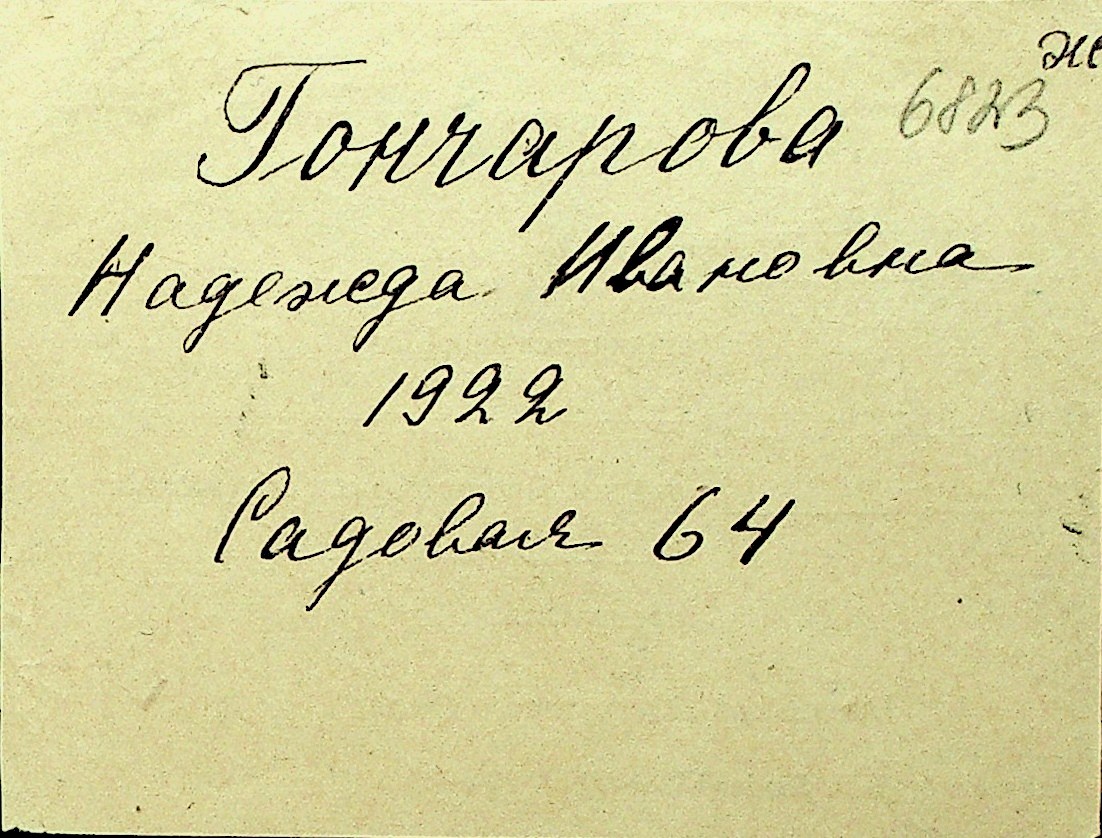 же
Гончарова 6823
Надежда Ивановна
1922
Садовая 64